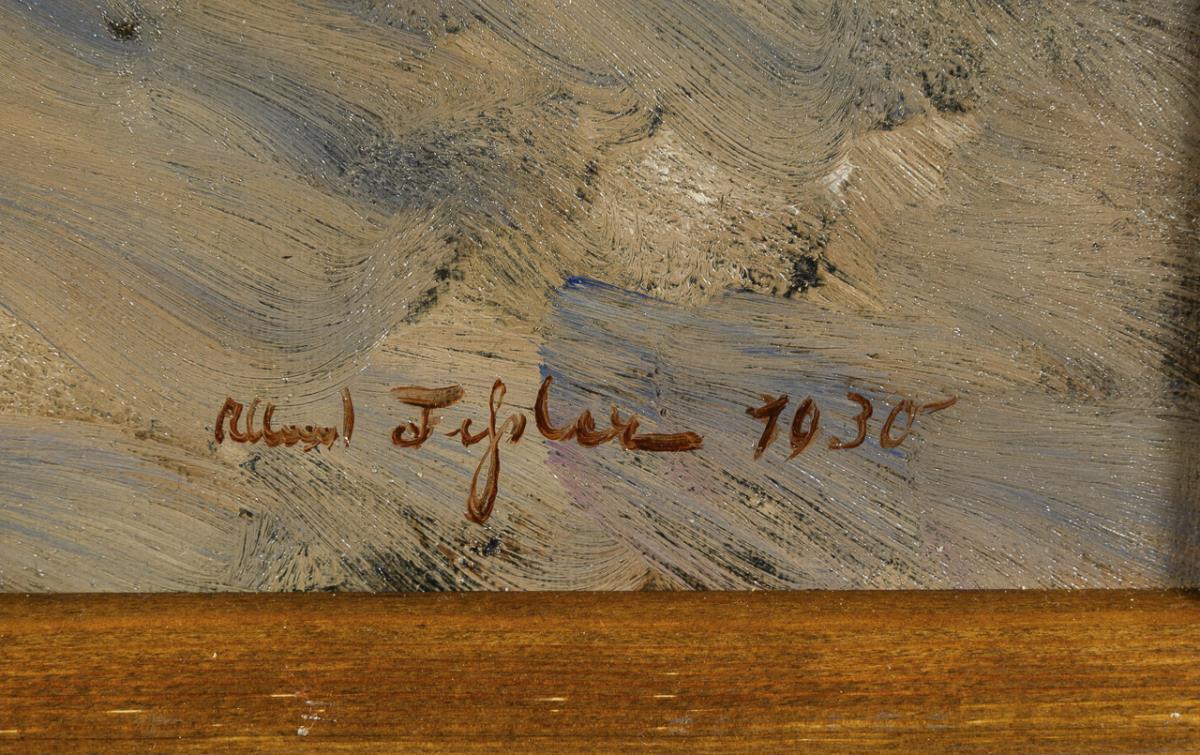 Albert Feßler 1930